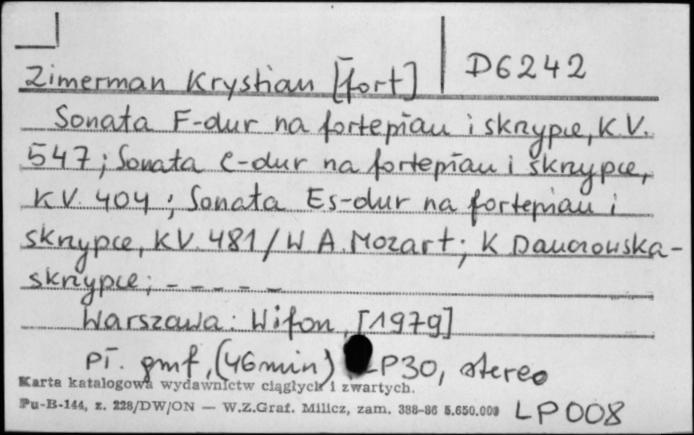 D6242
Zimerman Krystian [fort]
Sonata F-dur na fortepian i skrzypce, K.V.
547; Sonata C-dur na fortepian i skrzypce,
KV. 404; Sonata Es-dur na fortepian i
skrzypce, KV. 481/W A. Mozart; K Danczowska-
skrzypce; - - - - -
Warszawa: Wifon, [1979]
pł. gmf, (46min) LP30, stereo
Karta katalogowa wydawnictw ciągłych i zwartych.
Pu-B-144, z. 228/DW/ON — W.Z.Graf. Milicz, zam. 388-86 5.650.000
LP008